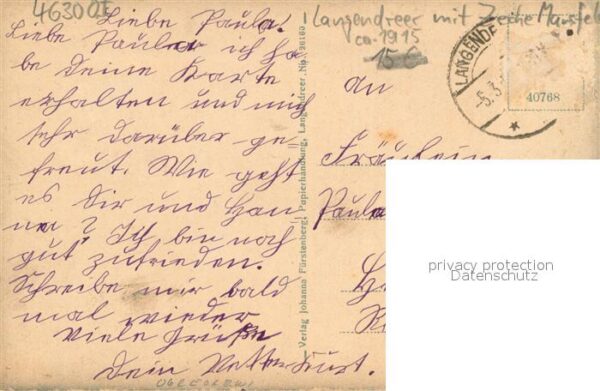 46300I
Langendreer mit Zeche Mansfel
ca. 1915
15 €
Liebe Paula!
Liebe Paula ich ha
be deine Karte
erhalten und mich
sehr darüber ge-
freut. Wie geht
es Dir und Han
na? Ich bin noch
gut zufrieden.
Schreibe mir bald
mal wieder
Viele Grüße
Dein Vetter Kurt.
Verlag Johanna Fürstenberg, Papierhandlung, Langendreer
LANGENDR
-5.3
40768
an
Fräulein
Paula
privacy protection
Datenschutz